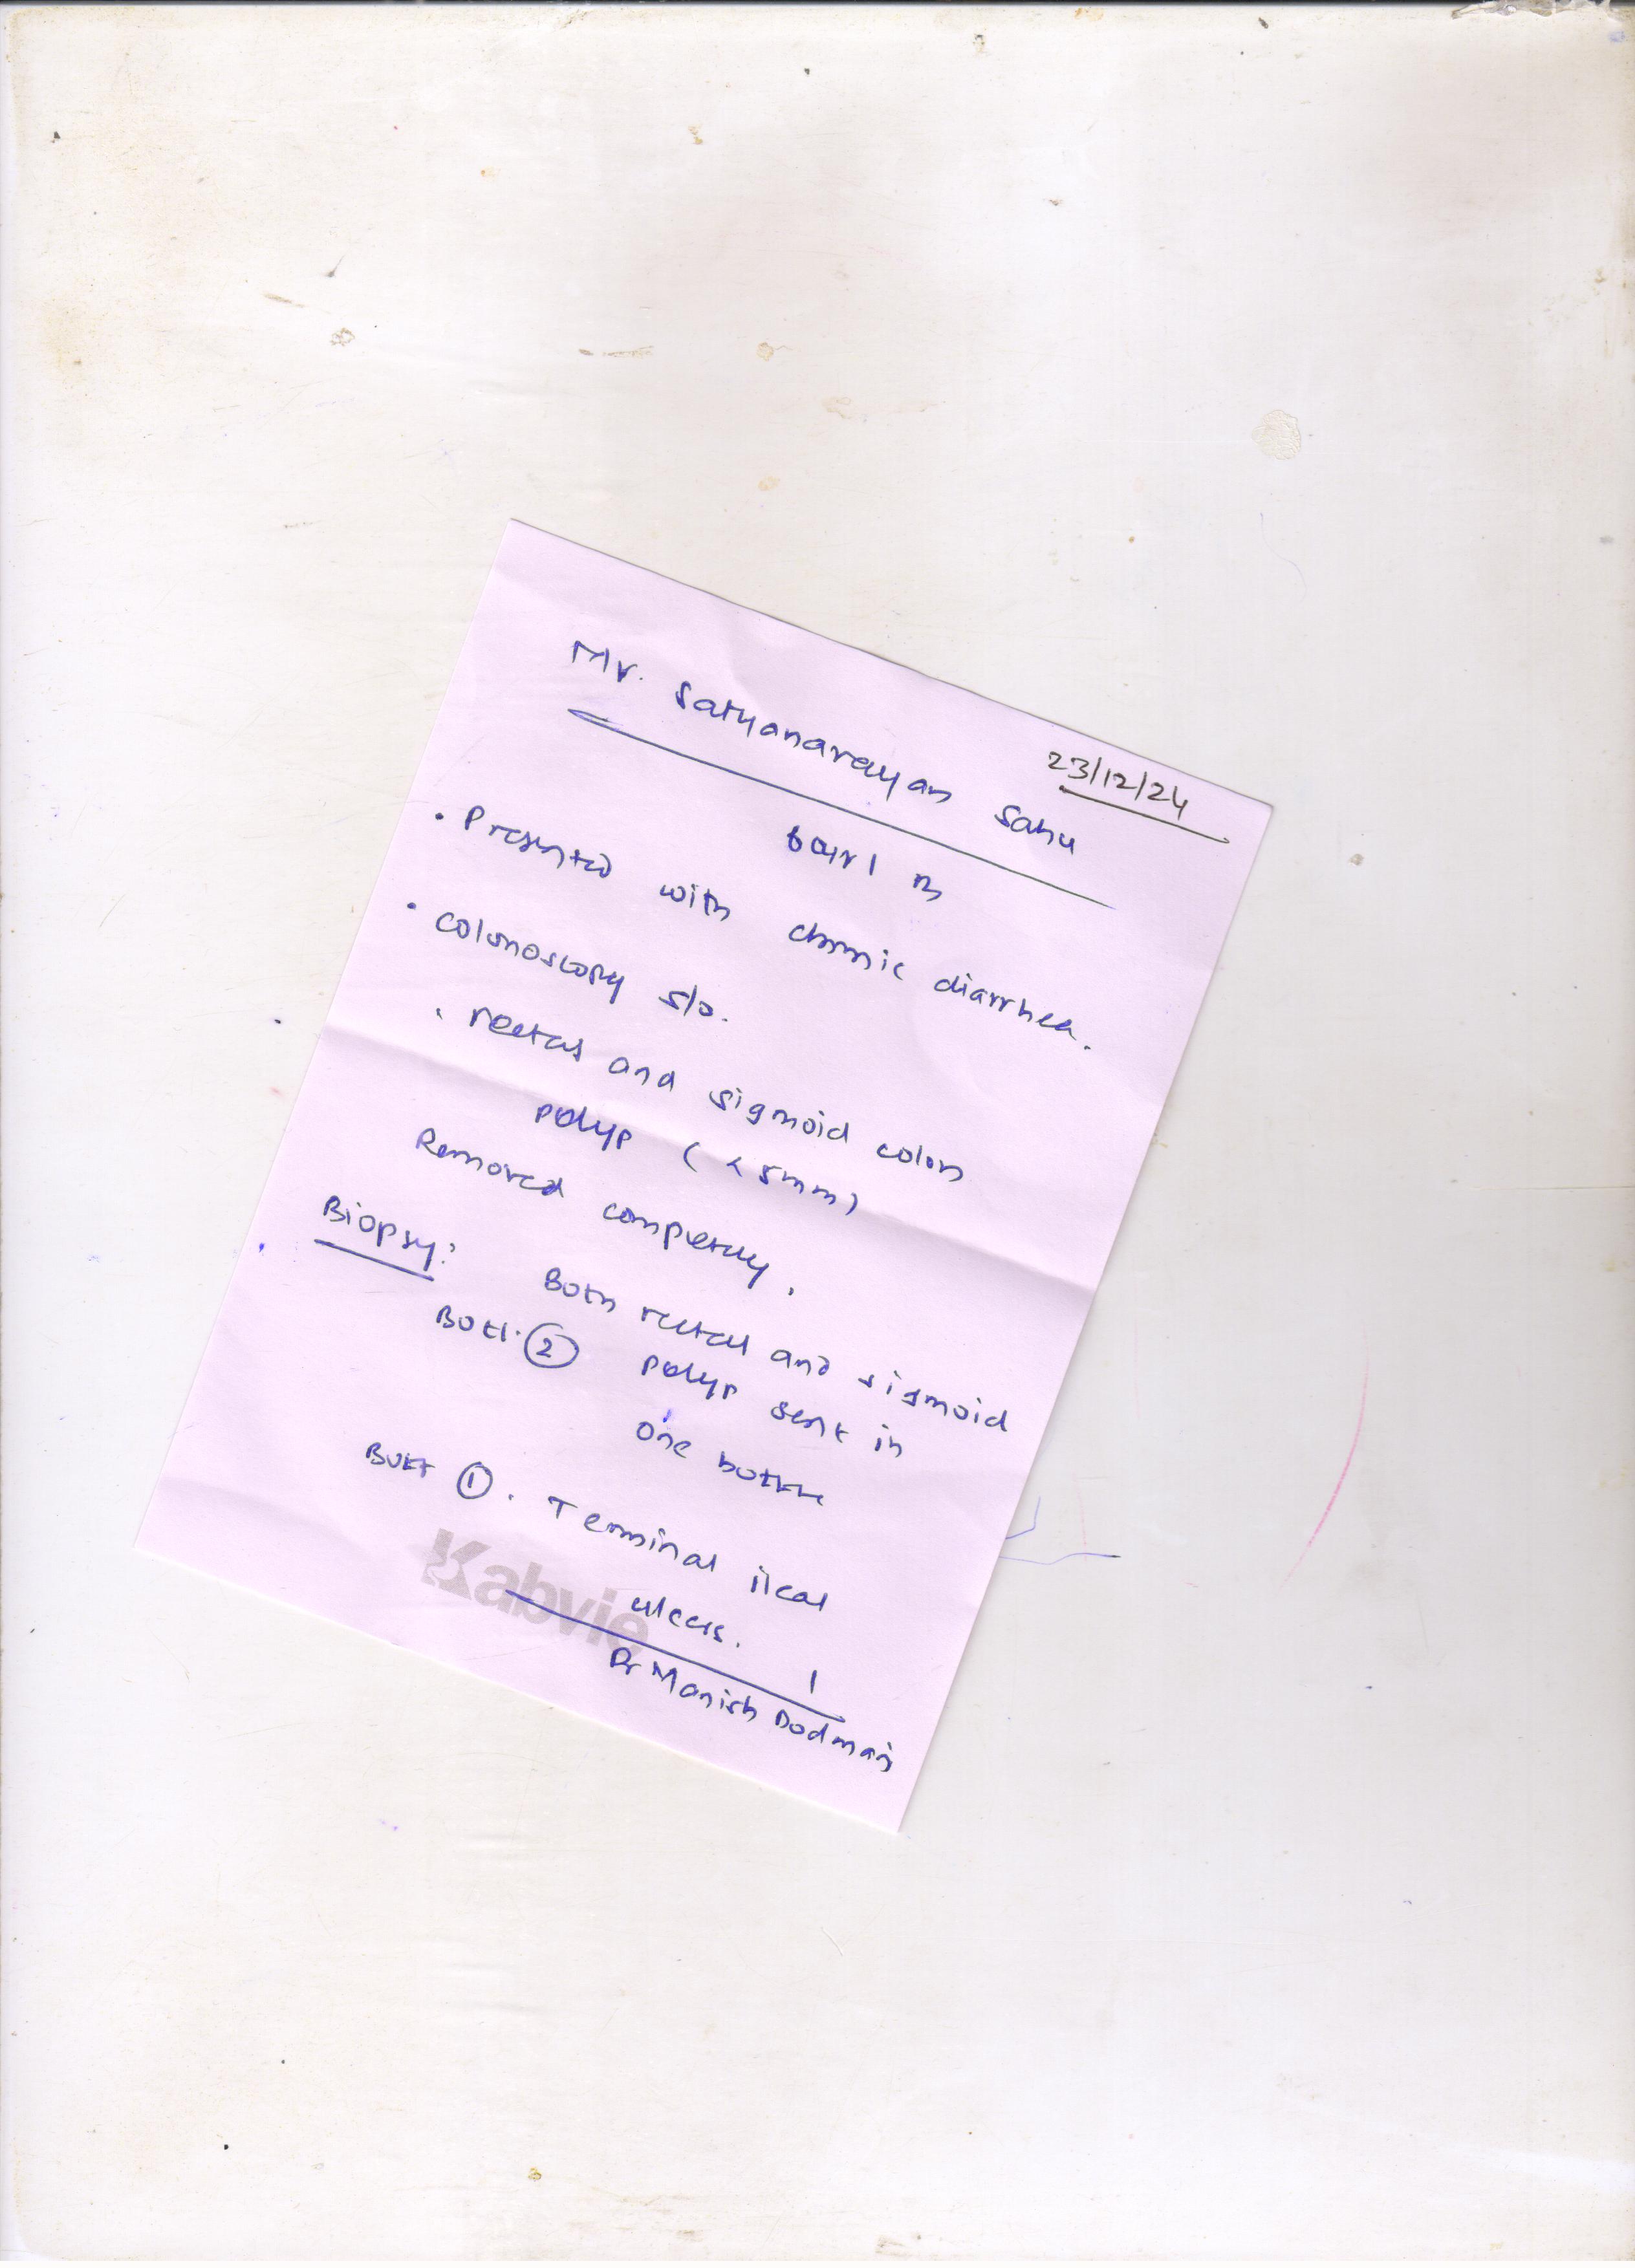 23/12/24
Mr. Satyanarayan Sahu
• Presented with chronic diarrhea.
• Colonoscopy s/o.
• rectal and sigmoid colon
polyp (<5mm)
Removed completely.
Biopsy: Both rectal and sigmoid
Bottl. ② polyp sent in
one bottle
Bott ①. Terminal ileal
ulcers.
Kabvie
Dr Manish Dodmani